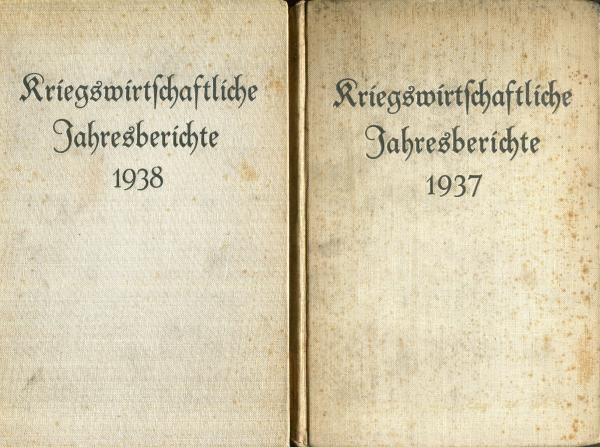 Kriegswirtſchaftliche
Jahresberichte
1938
Kriegswirtſchaftliche
Jahresberichte
1937